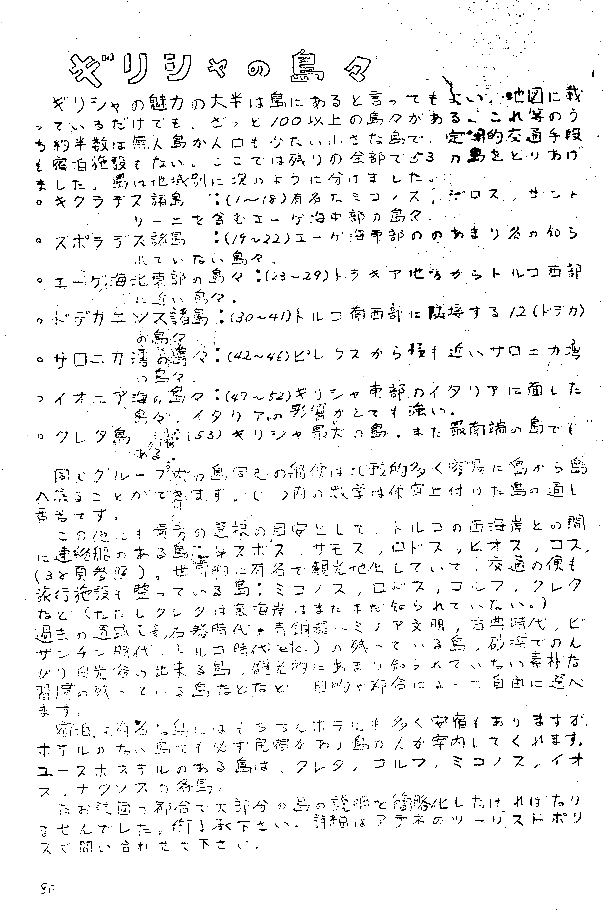 ギリシャの島々
ギリシャの魅力の大半は島にあると言ってもよい。地図に載
っているだけでも、ざっと100以上の島々がある。これ等のう
ち約半数は無人島か人口も少ない小さな島で、定期的交通手段
も宿泊施設もない。ここでは残りの全部で53の島をとりあげ
ました。島は地域別に次のように分けました。
○キクラデス諸島：(1〜18)有名なミコノス、デロス、サント
リーニを含むエーゲ海中部の島々。
○スポラデス諸島：(19〜22)エーゲ海東部ののあまり名の知ら
れていない島々。
○エーゲ海北東部の島々：(23〜29)トラキア地方からトルコ西部
に近い島々。
○ドデカニソス諸島：(30〜41)トルコ南西部に隣接する12(ドデカ)
の島々。
○サロニカ湾の島々：(42〜46)ピレウスから極も近いサロニカ湾
の島々。
○イオニア海の島々：(47〜52)ギリシャ東部のイタリアに面した
島々。イタリアの影響がとても強い。
○クレタ島 (53)ギリシャ最大の島。また最南端の島でも
ある。
同じグループ内の島同志の船便は比較的多く容易に島から島
へ渡ることができます。( )内の数字は体宜上付けた島の通し
番号です。
この他にも島の選択の目安として、トルコの西海岸との間
に連絡船のある島：レスボス、サモス、ロドス、ヒオス、コス、
(38頁参照)。世界的に有名で観光地化していて、交通の便も
旅行施設も整っている島：ミコノス、ロドス、コルフ、クレタ
など(ただしクレタは南海岸はまだまだ知られていない。)
過去の遺跡(石器時代、青銅器、ミノア文明、古典時代、ビ
ザンチン時代、トルコ時代etc.)の残っている島、砂浜でのん
びり日光浴の出来る島、観光的にあまり知られていない素朴な
習慣の残っている島などなど、目的や都合によって自由に選べ
ます。
宿泊は有名な島にはもちろんホテルも多く安宿もありますが、
ホテルのない島でも必ず民宿があり島の人が案内してくれます。
ユースホステルのある島は、クレタ、コルフ、ミコノス、イオ
ス、ナクソスの各島。
なお紙面の都合で大部分の島の説明を簡略化しなければなり
ませんでした。御了承下さい。詳細はアテネのツーリストポリ
スで問い合わせて下さい。